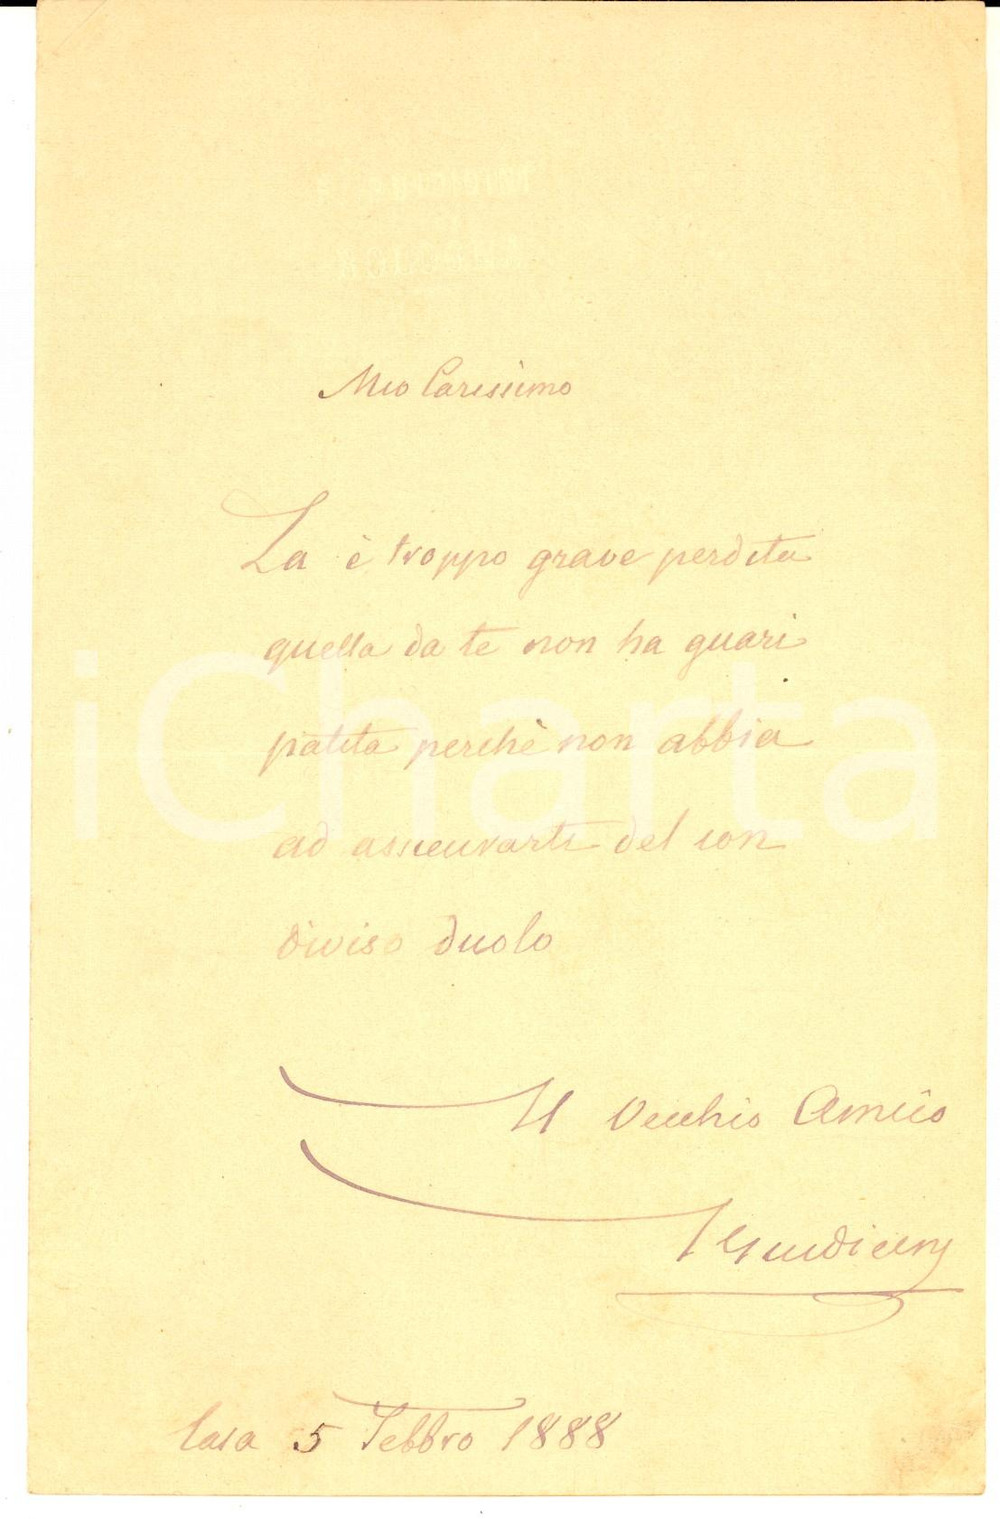 Mio Carissimo
La è troppo grave perdita
quella da te non ha guari
patita perchè non abbia
ad assicurarti del con
diviso duolo
Il Vecchio Amico
Casa 5 Febbro 1888
iCharta